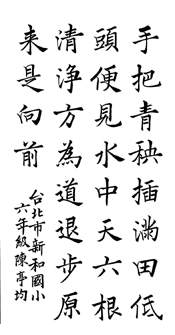 手把青秧插滿田低
頭便見水中天六根
清淨方為道退步原
来是向前
台北市新和國小
六年級陳亭均